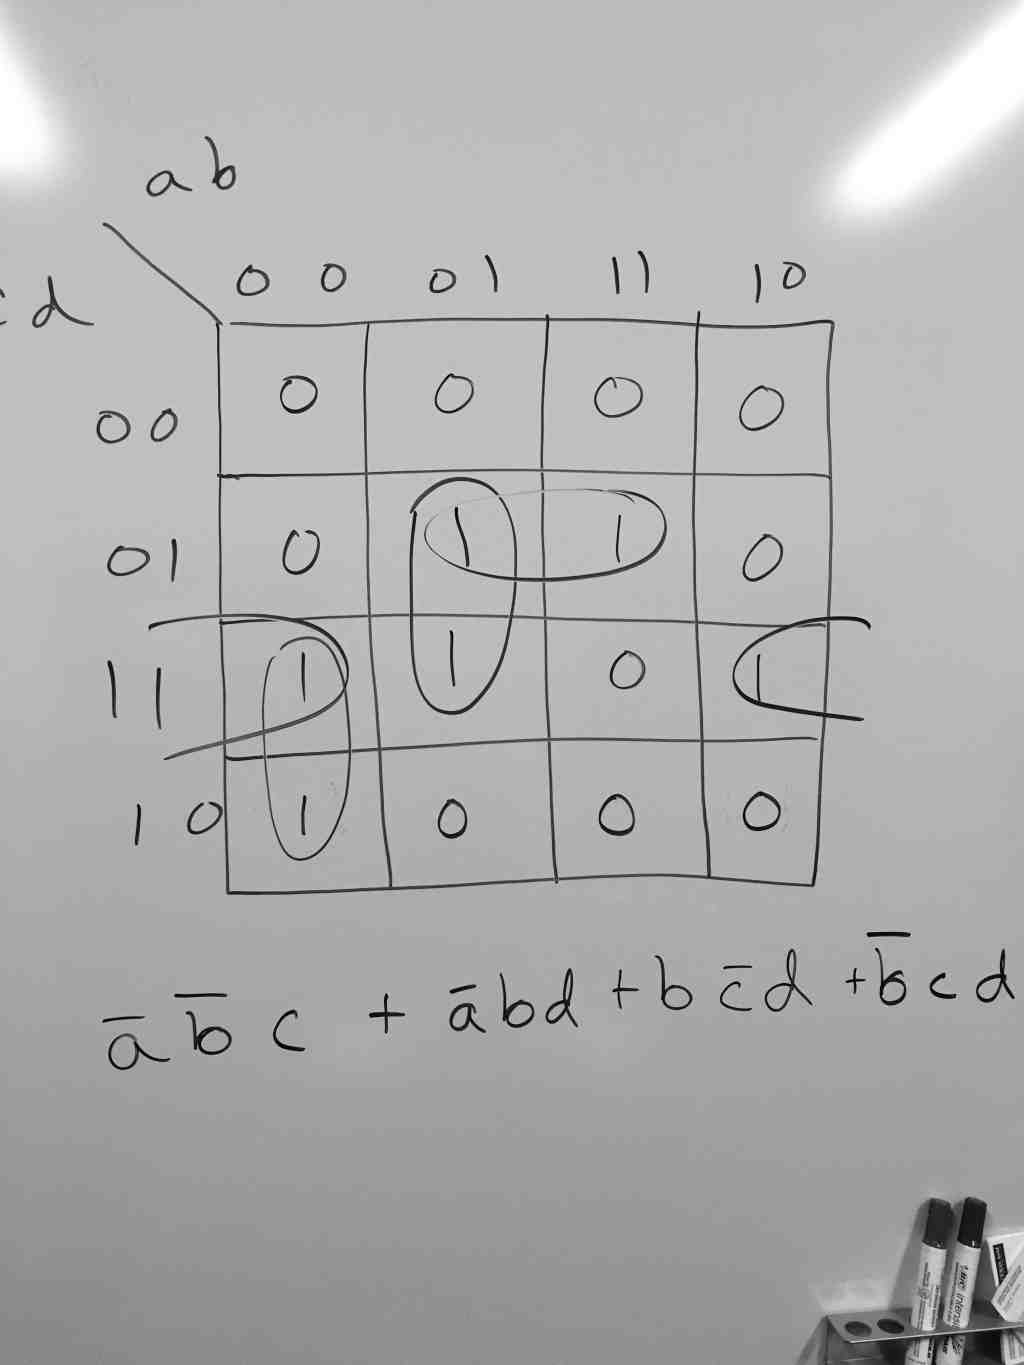 ab
cd
00 01 11 10
00 0 0 0 0
01 0 1 1 0
11 1 1 0 1
10 1 0 0 0
a̅ b̅ c + a̅bd + b c̅ d + b̅ c d